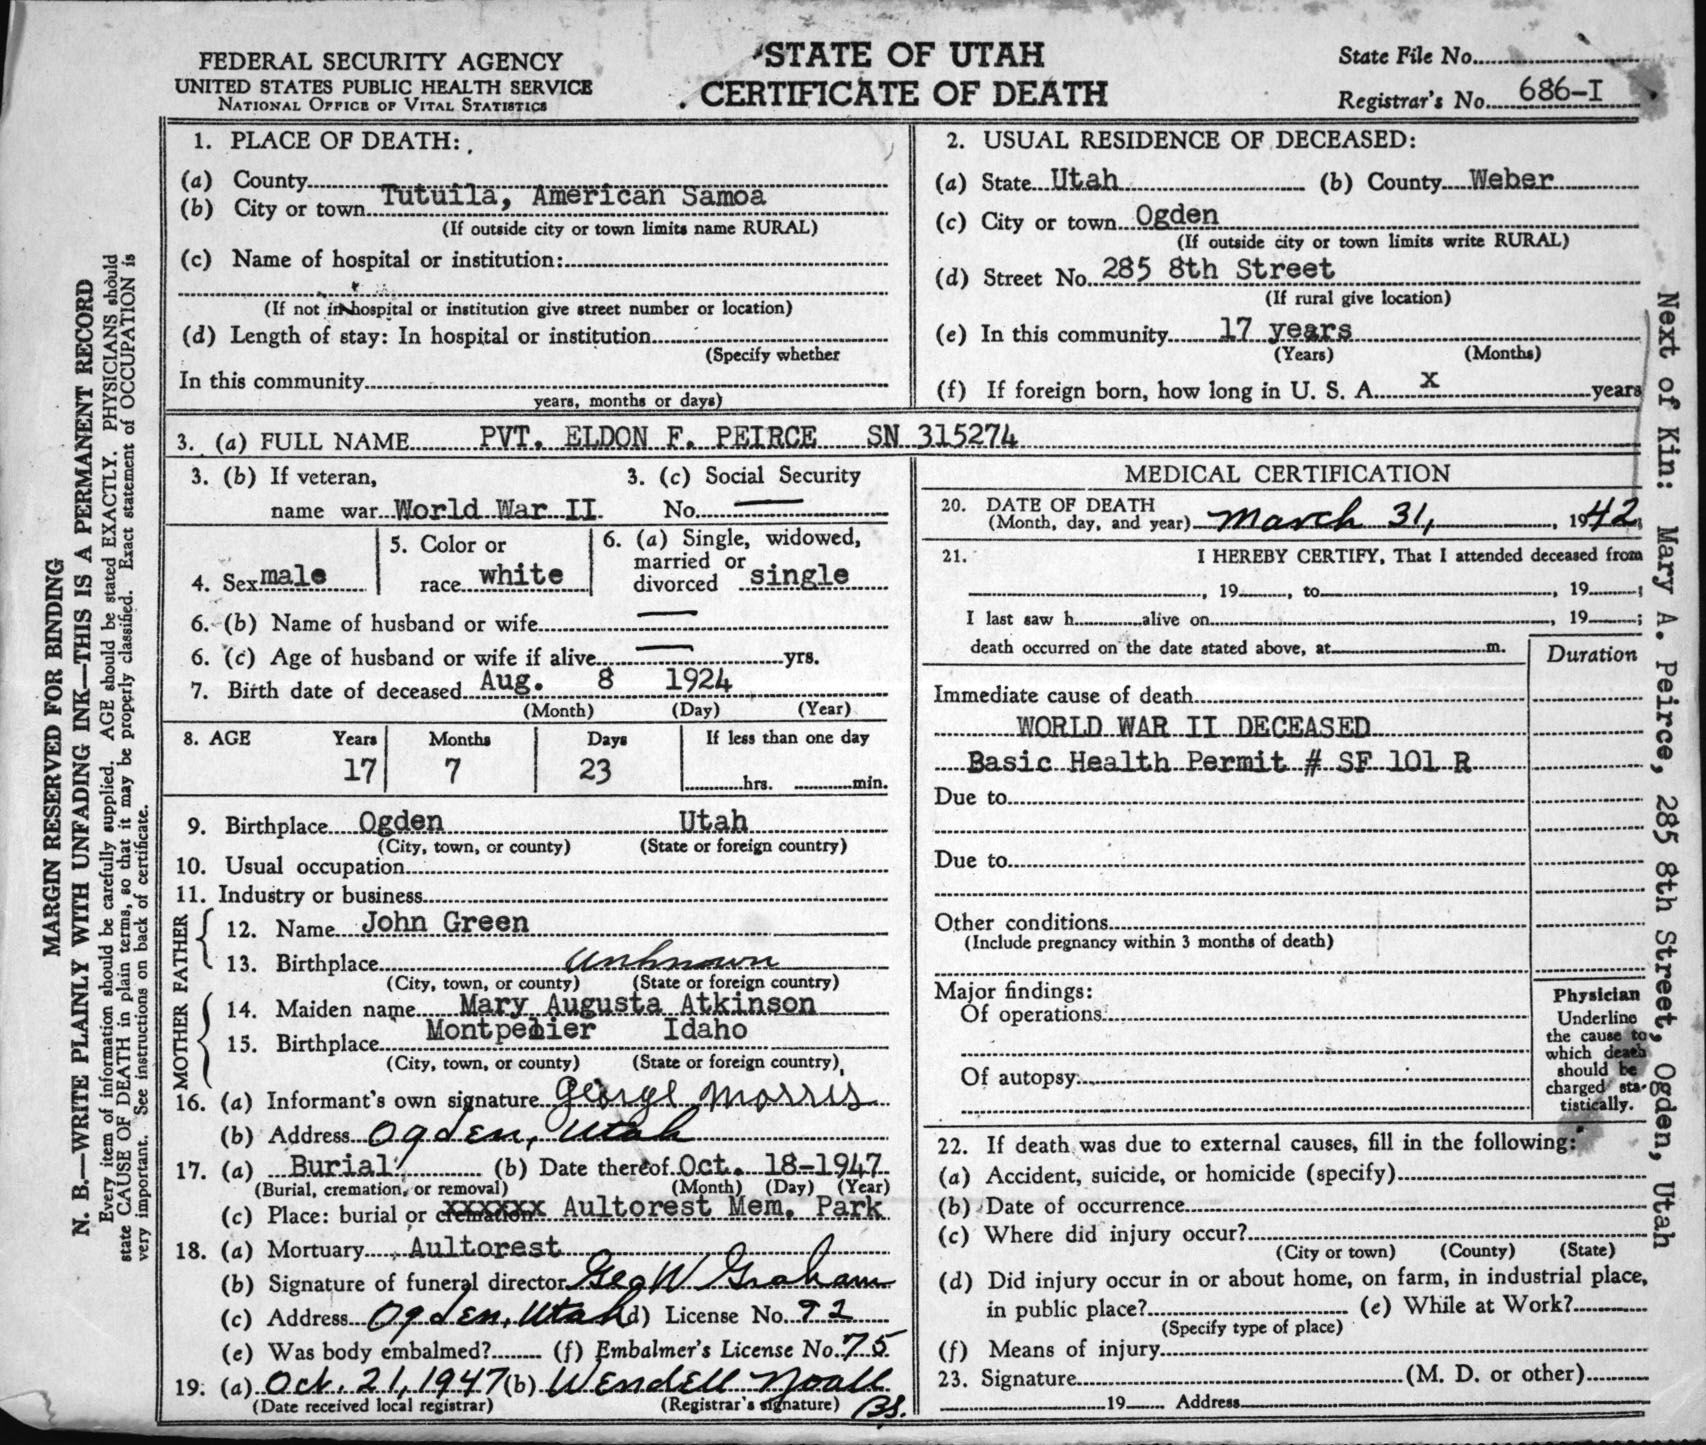 FEDERAL SECURITY AGENCY
UNITED STATES PUBLIC HEALTH SERVICE
NATIONAL OFFICE OF VITAL STATISTICS
STATE OF UTAH
CERTIFICATE OF DEATH
State File No.
Registrar's No. 686-I
1. PLACE OF DEATH:
(a) County
Tutuila, American Samoa
(b) City or town
(If outside city or town limits name RURAL)
(c) Name of hospital or institution:
(If not in hospital or institution give street number or location)
(d) Length of stay: In hospital or institution
(Specify whether
In this community
years, months or days)
2. USUAL RESIDENCE OF DECEASED:
(a) State Utah (b) County Weber
(c) City or town Ogden
(If outside city or town limits write RURAL)
(d) Street No. 285 8th Street
(If rural give location)
(e) In this community 17 years
(Years) (Months)
(f) If foreign born, how long in U. S. A. x years
3. (a) FULL NAME PVT. ELDON F. PEIRCE SN 315274
3. (b) If veteran,
name war World War II
3. (c) Social Security
No.
4. Sex male
5. Color or
race white
6. (a) Single, widowed,
married or
divorced single
6. (b) Name of husband or wife
6. (c) Age of husband or wife if alive yrs.
7. Birth date of deceased Aug. 8 1924
(Month) (Day) (Year)
8. AGE Years Months Days If less than one day
17 7 23
hrs. min.
9. Birthplace Ogden Utah
(City, town, or county) (State or foreign country)
10. Usual occupation
11. Industry or business
FATHER
12. Name John Green
13. Birthplace unknown
(City, town, or county) (State or foreign country)
MOTHER
14. Maiden name Mary Augusta Atkinson
15. Birthplace Montpelier Idaho
(City, town, or county) (State or foreign country)
16. (a) Informant's own signature George Morris
(b) Address Ogden, Utah
17. (a) Burial (b) Date thereof Oct. 18-1947
(Burial, cremation, or removal) (Month) (Day) (Year)
(c) Place: burial or cremation Aultorest Mem. Park
18. (a) Mortuary Aultorest
(b) Signature of funeral director Geo W Graham
(c) Address Ogden, Utah (d) License No. 92
(e) Was body embalmed? (f) Embalmer's License No. 75
19. (a) Oct. 21, 1947 (b) Wendell Noall
(Date received local registrar) (Registrar's signature) BS.
MEDICAL CERTIFICATION
20. DATE OF DEATH
(Month, day, and year) March 31, 1942
21. I HEREBY CERTIFY, That I attended deceased from
, 19 , to , 19 ;
I last saw h alive on , 19 ;
death occurred on the date stated above, at m.
Duration
Immediate cause of death
WORLD WAR II DECEASED
Basic Health Permit # SF 101 R
Due to
Due to
Other conditions
(Include pregnancy within 3 months of death)
Major findings:
Of operations
Of autopsy
Physician
Underline
the cause to
which death
should be
charged sta-
tistically.
22. If death was due to external causes, fill in the following:
(a) Accident, suicide, or homicide (specify)
(b) Date of occurrence
(c) Where did injury occur?
(City or town) (County) (State)
(d) Did injury occur in or about home, on farm, in industrial place,
in public place? (e) While at Work?
(Specify type of place)
(f) Means of injury
23. Signature (M. D. or other)
19 Address
MARGIN RESERVED FOR BINDING
N. B.—WRITE PLAINLY WITH UNFADING INK—THIS IS A PERMANENT RECORD
Every item of information should be carefully supplied. AGE should be stated EXACTLY. PHYSICIANS should
state CAUSE OF DEATH in plain terms, so that it may be properly classified. Exact statement of OCCUPATION is
very important. See instructions on back of certificate.
Next of Kin: Mary A. Peirce, 285 8th Street, Ogden, Utah